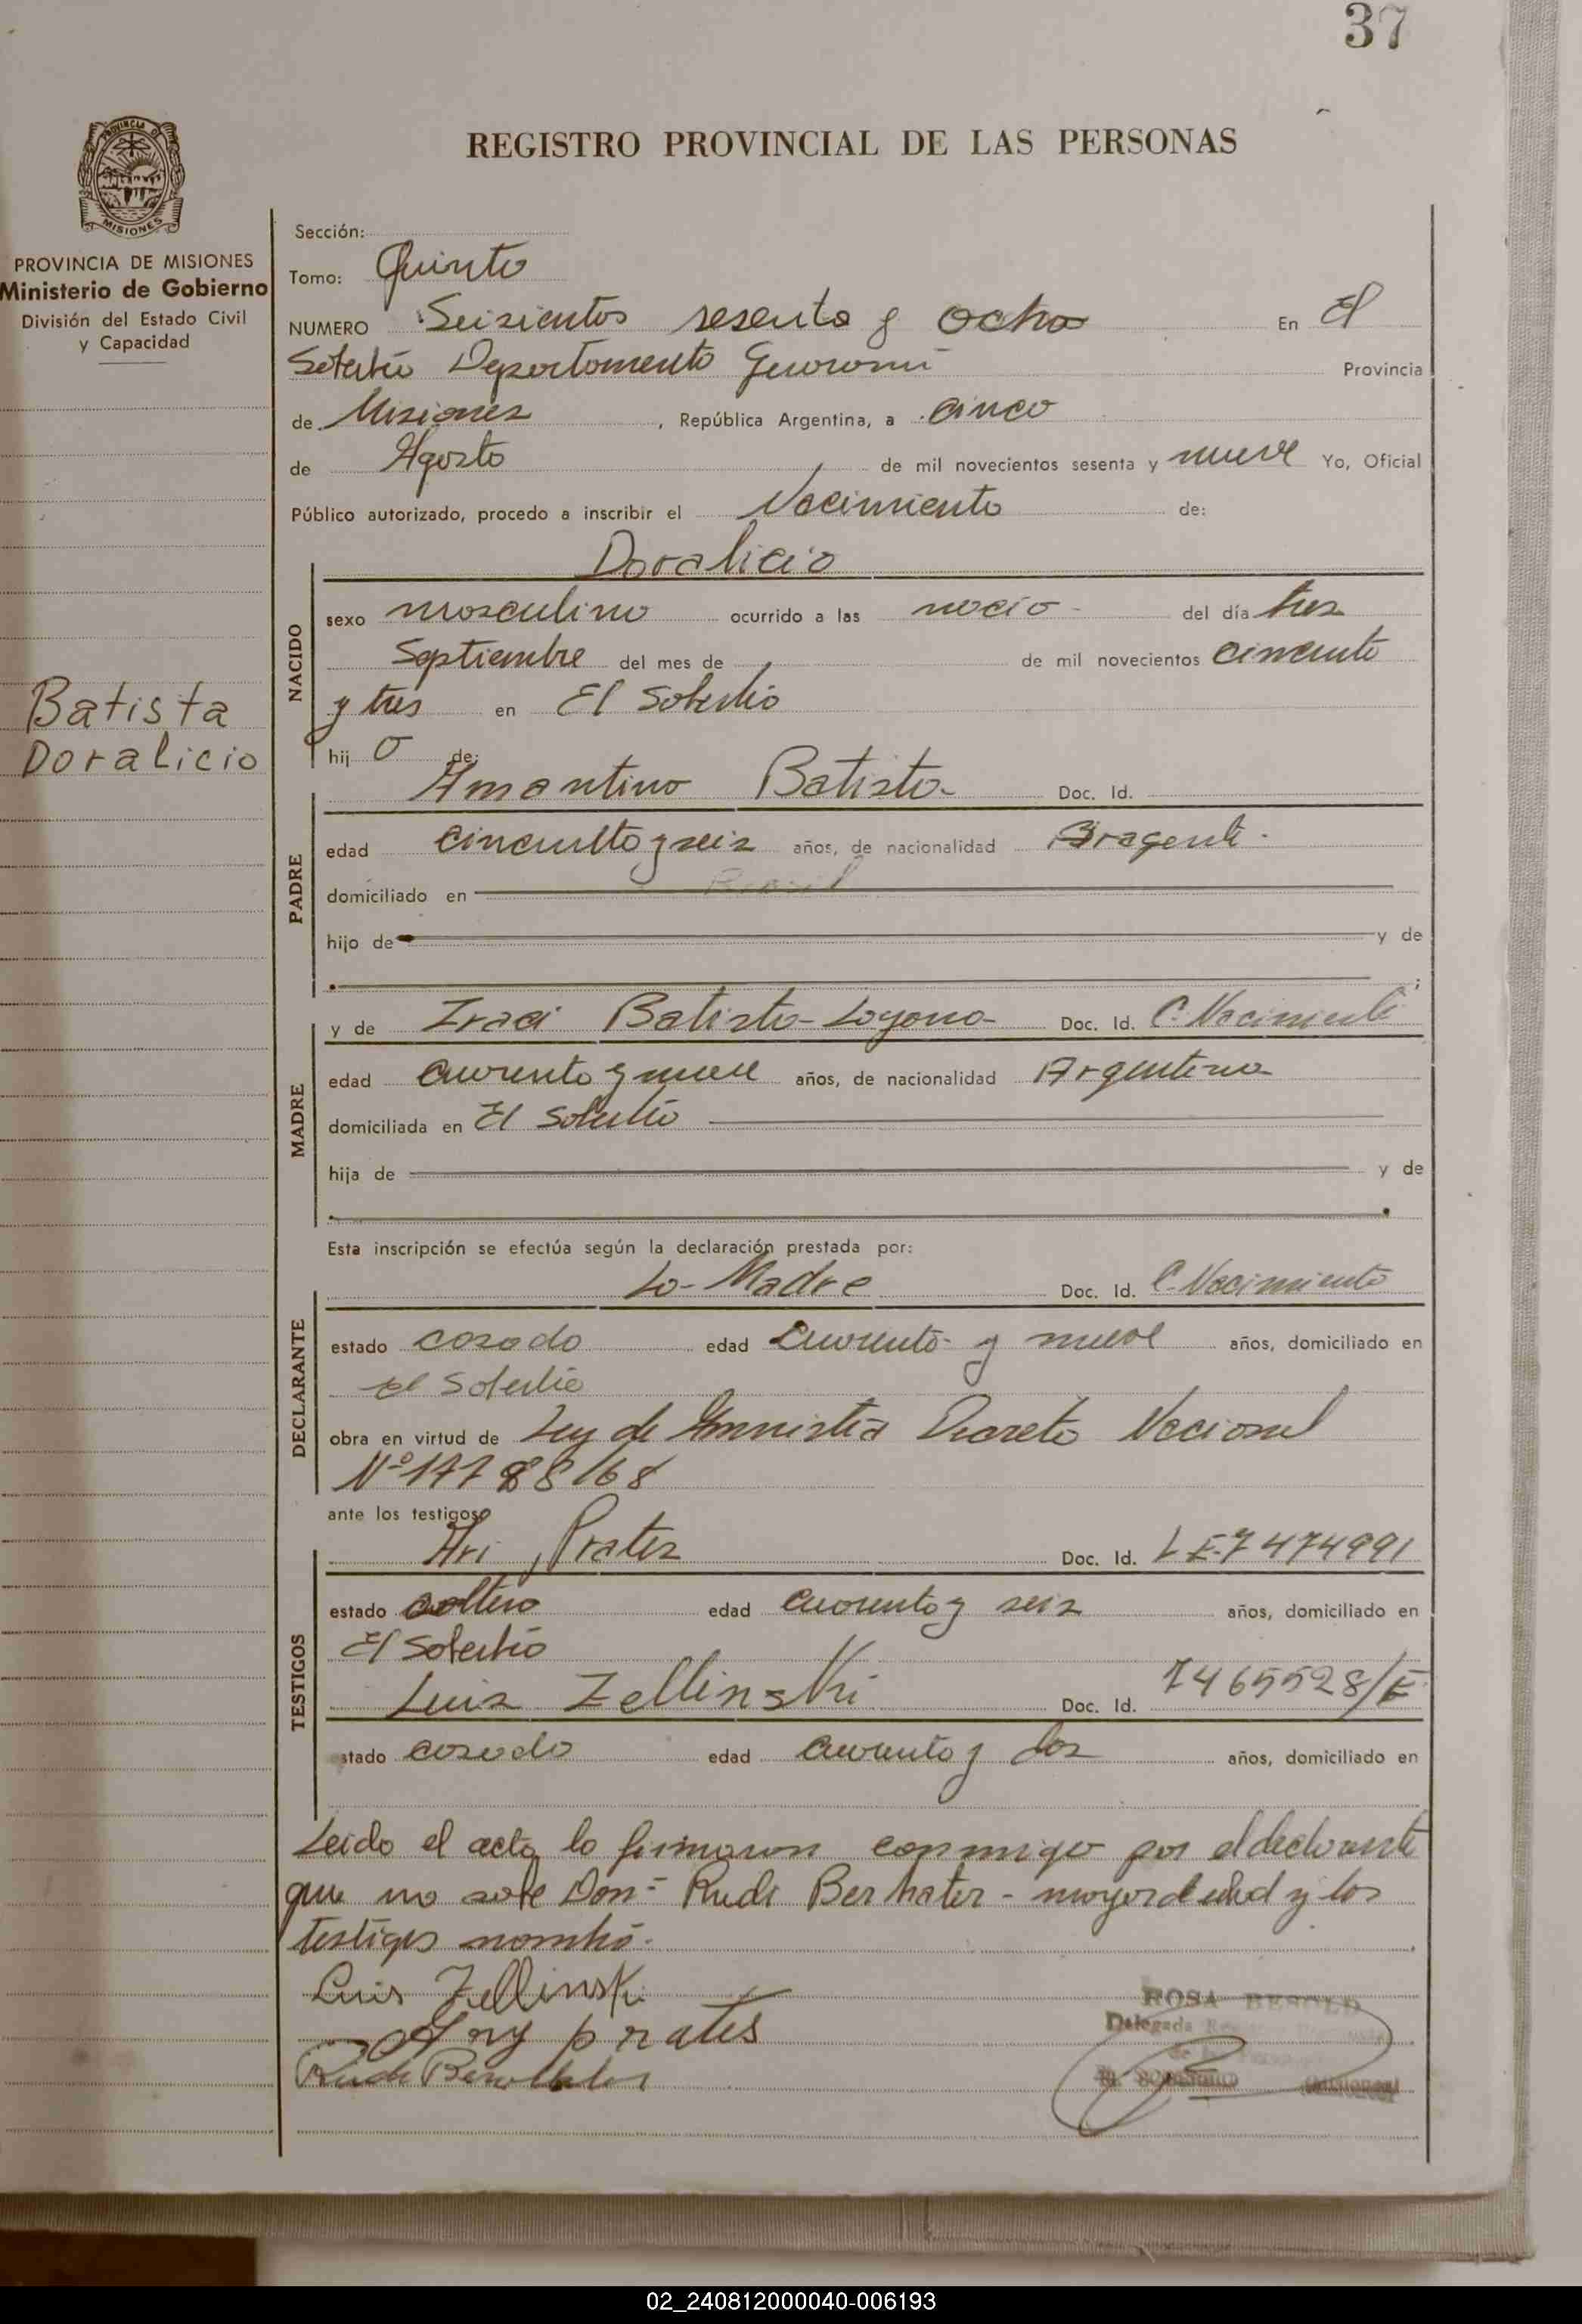 37
REGISTRO PROVINCIAL DE LAS PERSONAS
PROVINCIA DE MISIONES
PROVINCIA DE MISIONES
Ministerio de Gobierno
División del Estado Civil
y Capacidad
Sección:
Tomo: Quinto
NUMERO Seisientos sesenta y ocho En El
Soberbio Departamento Guarani Provincia
de Misiones, República Argentina, a cinco
de Agosto de mil novecientos sesenta y nueve Yo, Oficial
Público autorizado, procedo a inscribir el Nacimiento de:
Doralicio
NACIDO
sexo masculino ocurrido a las nacio- del día tres
Septiembre del mes de de mil novecientos cincuenta
y tres en El Soberbio
Batista
Doralicio
hij o de:
Amantino Batista- Doc. Id.
PADRE
edad cincuenta y seis años, de nacionalidad
domiciliado en Brasil
hijo de y de
y de Iraci Batista- Doc. Id. C. Nacimiento
MADRE
edad cuarenta y nueve años, de nacionalidad Argentina
domiciliada en El Soberbio
hija de y de
Esta inscripción se efectúa según la declaración prestada por:
La- Madre Doc. Id. C. Nacimiento
DECLARANTE
estado casado edad cuarenta- y nueve años, domiciliado en
El Soberbio
obra en virtud de Ley de Amnistia Decreto Nacional
Nº 177 88/68
ante los testigos
Ari, Prates Doc. Id. L E. 7474991
TESTIGOS
estado soltero edad cuarenta y seis años, domiciliado en
El Soberbio
Luis Zellinski Doc. Id. 7465528/E
estado casado edad cuarenta y dos años, domiciliado en
Leido el acta la firmaron conmigo por el declarante
que no sabe Don- Rudi mayor de edad y los
testigos
Luis Zellinski
Ary prates
Rudi
ROSA BESOLD
Delegada
El Soberbio (Misiones)
02_240812000040-006193